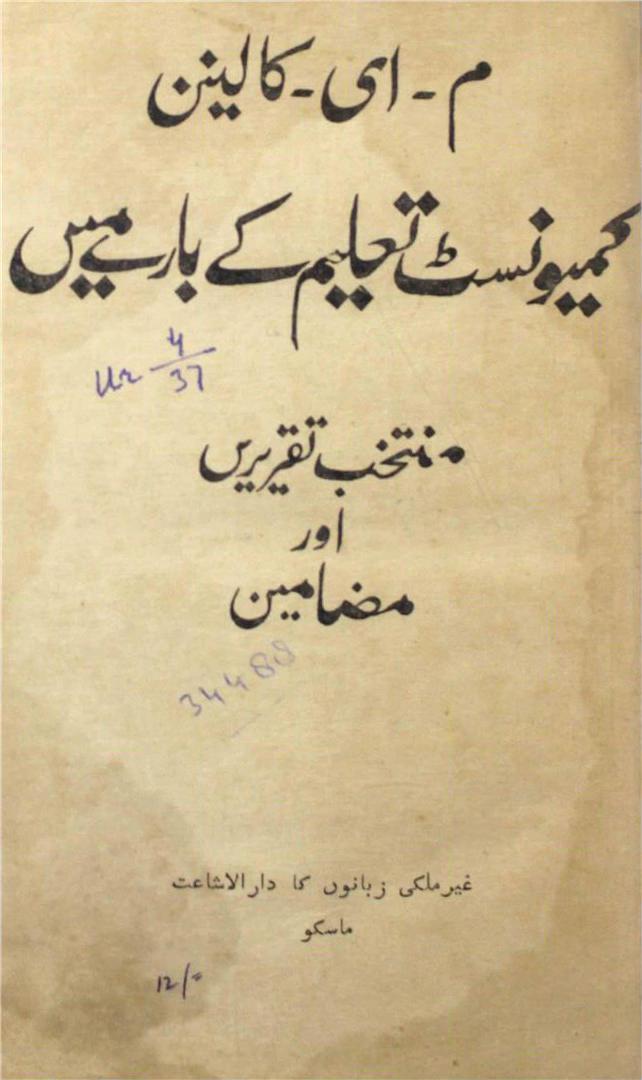 م ـ ای ـ کالینن
کمیونسٹ تعلیم کے بارے میں
Ur 4/37
منتخب تقریریں
اور
مضامین
34488
غیر ملکی زبانوں کا دارالاشاعت
ماسکو
12/=